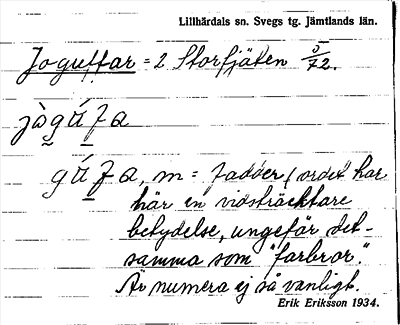 Lillhärdals sn. Svegs tg. Jämtlands län.
Jo-guffar = 2 Storfjäten 3/72.
jò gú f a
gú f a, m = fadder (ordet har
här en vidsträcktare
betydelse, ungefär det-
samma som "farbror".
Är numera ej så vanligt.
Erik Eriksson 1934.